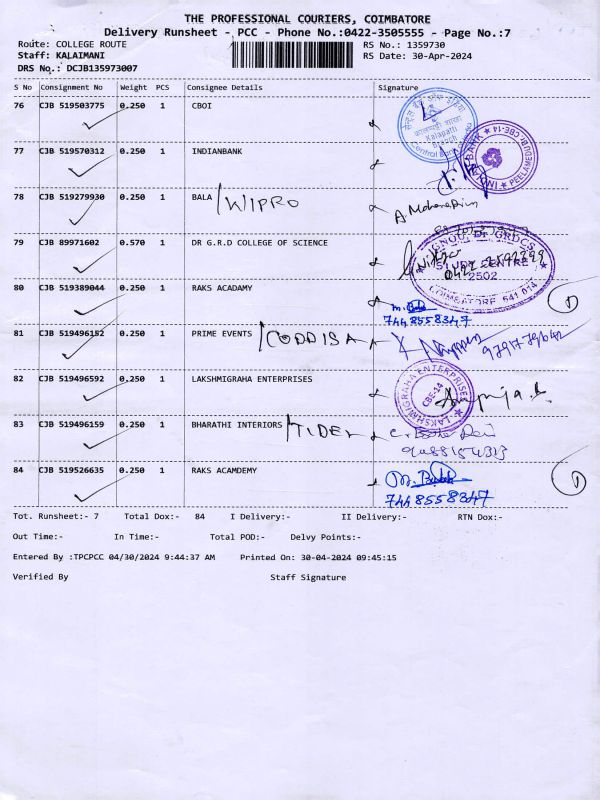 THE PROFESSIONAL COURIERS, COIMBATORE
Delivery Runsheet - PCC - Phone No.:0422-3505555 - Page No.:7
Route: COLLEGE ROUTE RS No.: 1359730
Staff: KALAIMANI RS Date: 30-Apr-2024
DRS No.: DCJB135973007
S No Consignment No Weight PCS Consignee Details Signature
76 CJB 519503775 0.250 1 CBOI
सेन्ट्रल बैंक ऑफ इंडिया
Kalapatti
Branch
Central Bank
77 CJB 519570312 0.250 1 INDIANBANK
PEELAMEDU BR, CBE-14
78 CJB 519279930 0.250 1 BALA /WIPRO
79 CJB 89971602 0.570 1 DR G.R.D COLLEGE OF SCIENCE
IGNOU DR GRDCS
STUDY CENTRE
2502
COIMBATORE 641 014
80 CJB 519389044 0.250 1 RAKS ACADAMY
7448558347
81 CJB 519496152 0.250 1 PRIME EVENTS /CODDISA
82 CJB 519496592 0.250 1 LAKSHMIGRAHA ENTERPRISES
LAKSHMIGRAHA ENTERPRISES
CBE-14
83 CJB 519496159 0.250 1 BHARATHI INTERIORS /TIDEL
84 CJB 519526635 0.250 1 RAKS ACAMDEMY
7448558347
Tot. Runsheet:- 7 Total Dox:- 84 I Delivery:- II Delivery:- RTN Dox:-
Out Time:- In Time:- Total POD:- Delvy Points:-
Entered By :TPCPCC 04/30/2024 9:44:37 AM Printed On: 30-04-2024 09:45:15
Verified By Staff Signature